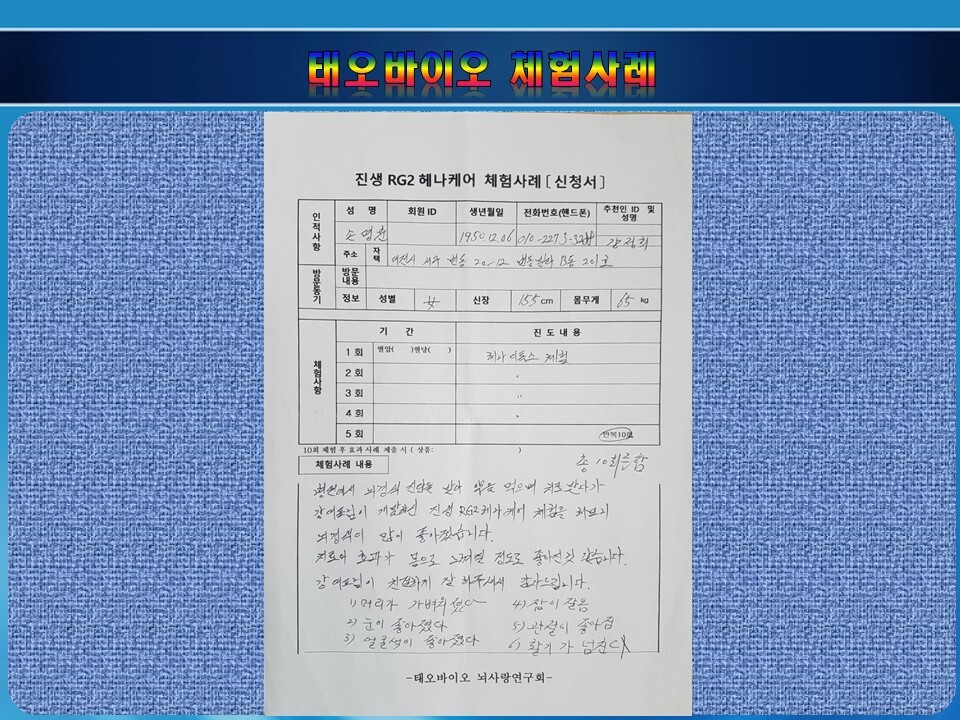 태오바이오 체험사례
진생 RG2 헤나케어 체험사례 [ 신청서 ]
인적사항 성 명 회원 ID 생년월일 전화번호(핸드폰) 추천인 ID 및 성명
손영윤 1950.12.06 강정희
주소 자택 서구 20-12 B동 201호
방문동기 방문내용
정보 성별 女 신장 155 cm 몸무게 65 kg
체험사항 기 간 진 도 내 용
1 회 혈압( )혈당( ) 헤나 체험
2 회 "
3 회 "
4 회 "
5 회 반복10회
10회 체험 후 효과 사례 제출 시 ( 상품: )
체험사례 내용 총 10회
병원에서 뇌경색 진단을 받아 약을 먹으며 치료받다가
강대표님이 개발하신 진생 RG2헤나케어 체험을 해보니
뇌경색이 많이 좋아졌습니다.
치료의 효과가 몸으로 느껴질 정도로 좋아진것 같습니다.
강대표님이 친절하게 잘 해주셔서 감사드립니다.
1) 머리가 가벼워졌다 4) 잠이 잘옴
2) 눈이 좋아졌다 5) 관절이 좋아짐
3) 얼굴색이 좋아졌다 6) 활기가 넘친다
-태오바이오 뇌사랑연구회-